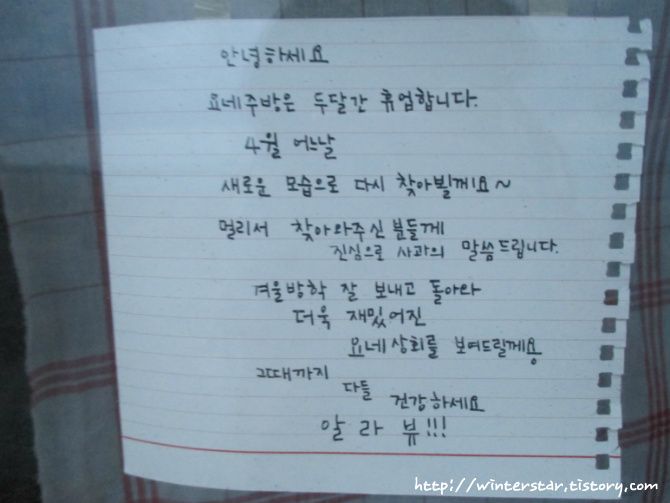 안녕하세요
요네주방은 두달간 휴업합니다.
4월 어느날
새로운 모습으로 다시 찾아뵐께요~
멀리서 찾아와주신 분들께
진심으로 사과의 말씀드립니다.
겨울방학 잘 보내고 돌아와
더욱 재밌어진
요네상회를 보여드릴께용
그때까지
다들
건강하세요
알 라 뷰!!!
http://winterstar.tistory.com/